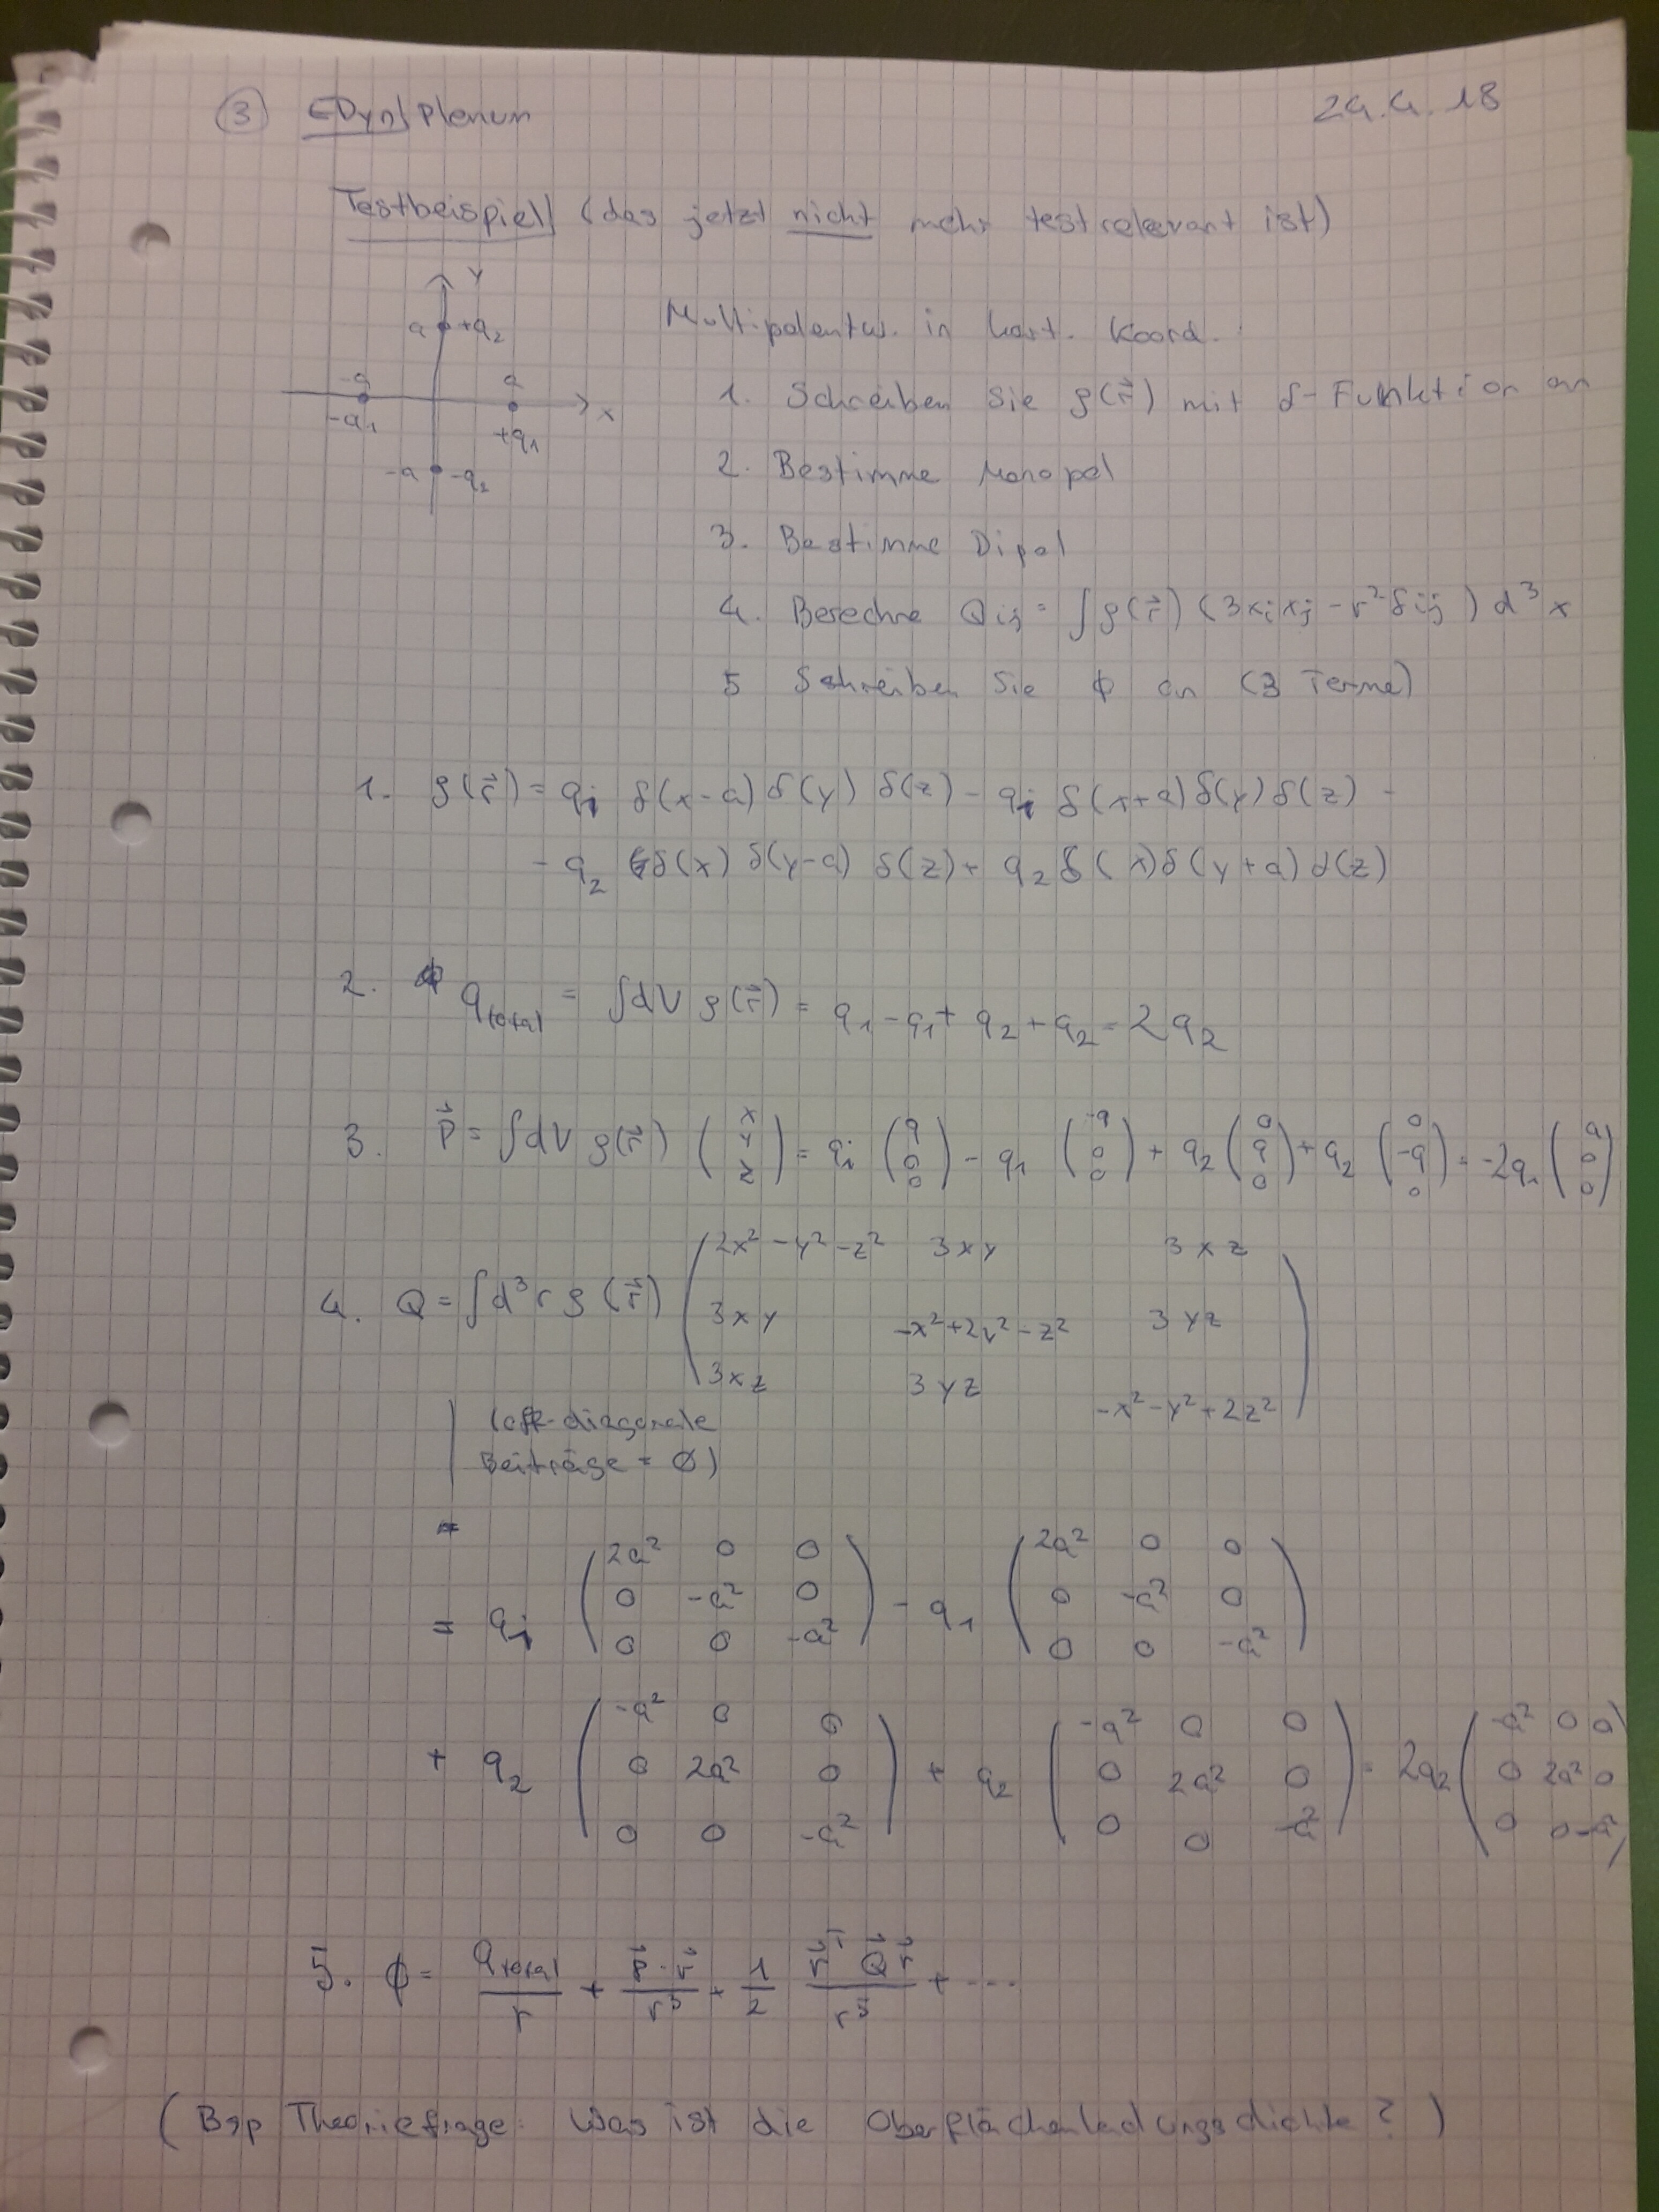 ③ EDyn Plenum 24.4.18
Testbeispiel (das jetzt nicht mehr testrelevant ist)
y
a +q₂
-a a
-q₁ +q₁ x
-a -q₂
Multipolentw. in kart. Koord.:
1. Schreiben Sie ρ(r⃗) mit δ-Funktion an
2. Bestimme Monopol
3. Bestimme Dipol
4. Berechne Qij = ∫ρ(r⃗) (3xixj - r²δij) d³x
5 Schreiben Sie ϕ an (3 Terme)
1. ρ(r⃗) = q₁ δ(x-a) δ(y) δ(z) - q₁ δ(x+a) δ(y) δ(z) -
- q₂ δ(x) δ(y-a) δ(z) + q₂ δ(x) δ(y+a) δ(z)
2. q_total = ∫dV ρ(r⃗) = q₁ - q₁ + q₂ + q₂ = 2q₂
3. p⃗ = ∫dV ρ(r⃗) (x y z) = q₁ (a 0 0) - q₁ (-a 0 0) + q₂ (0 a 0) + q₂ (0 -a 0) = -2q₁ (a 0 0)
4. Q = ∫d³r ρ(r⃗) (2x²-y²-z² 3xy 3xz
3xy -x²+2y²-z² 3yz
3xz 3yz -x²-y²+2z²)
(off-diagonale
Beiträge = ∅)
=
= q₁ (2a² 0 0 - q₁ (2a² 0 0
0 -a² 0 0 -a² 0
0 0 -a²) 0 0 -a²)
+ q₂ (-a² 0 0 + q₂ (-a² 0 0 = 2q₂ (-a² 0 0
0 2a² 0 0 2a² 0 0 2a² 0
0 0 -a²) 0 0 -a²) 0 0 -a²)
5. ϕ = q_total/r + p⃗·r⃗/r³ + 1/2 r⃗ᵀ Q⃗ r⃗/r⁵ + ...
(Bsp Theoriefrage: Was ist die Oberflächenladungsdichte?)